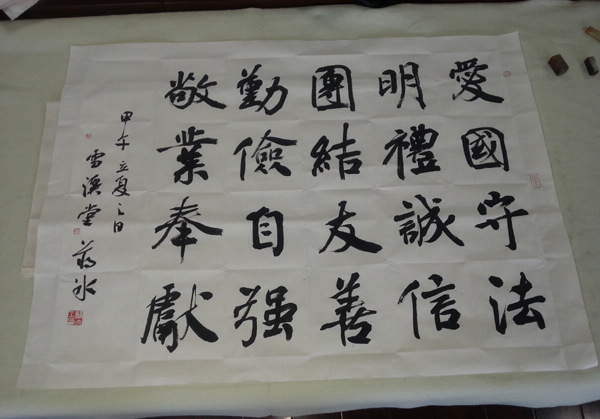 愛國守法
明禮誠信
團結友善
勤儉自强
敬業奉獻
甲午立夏之日
雪漁堂